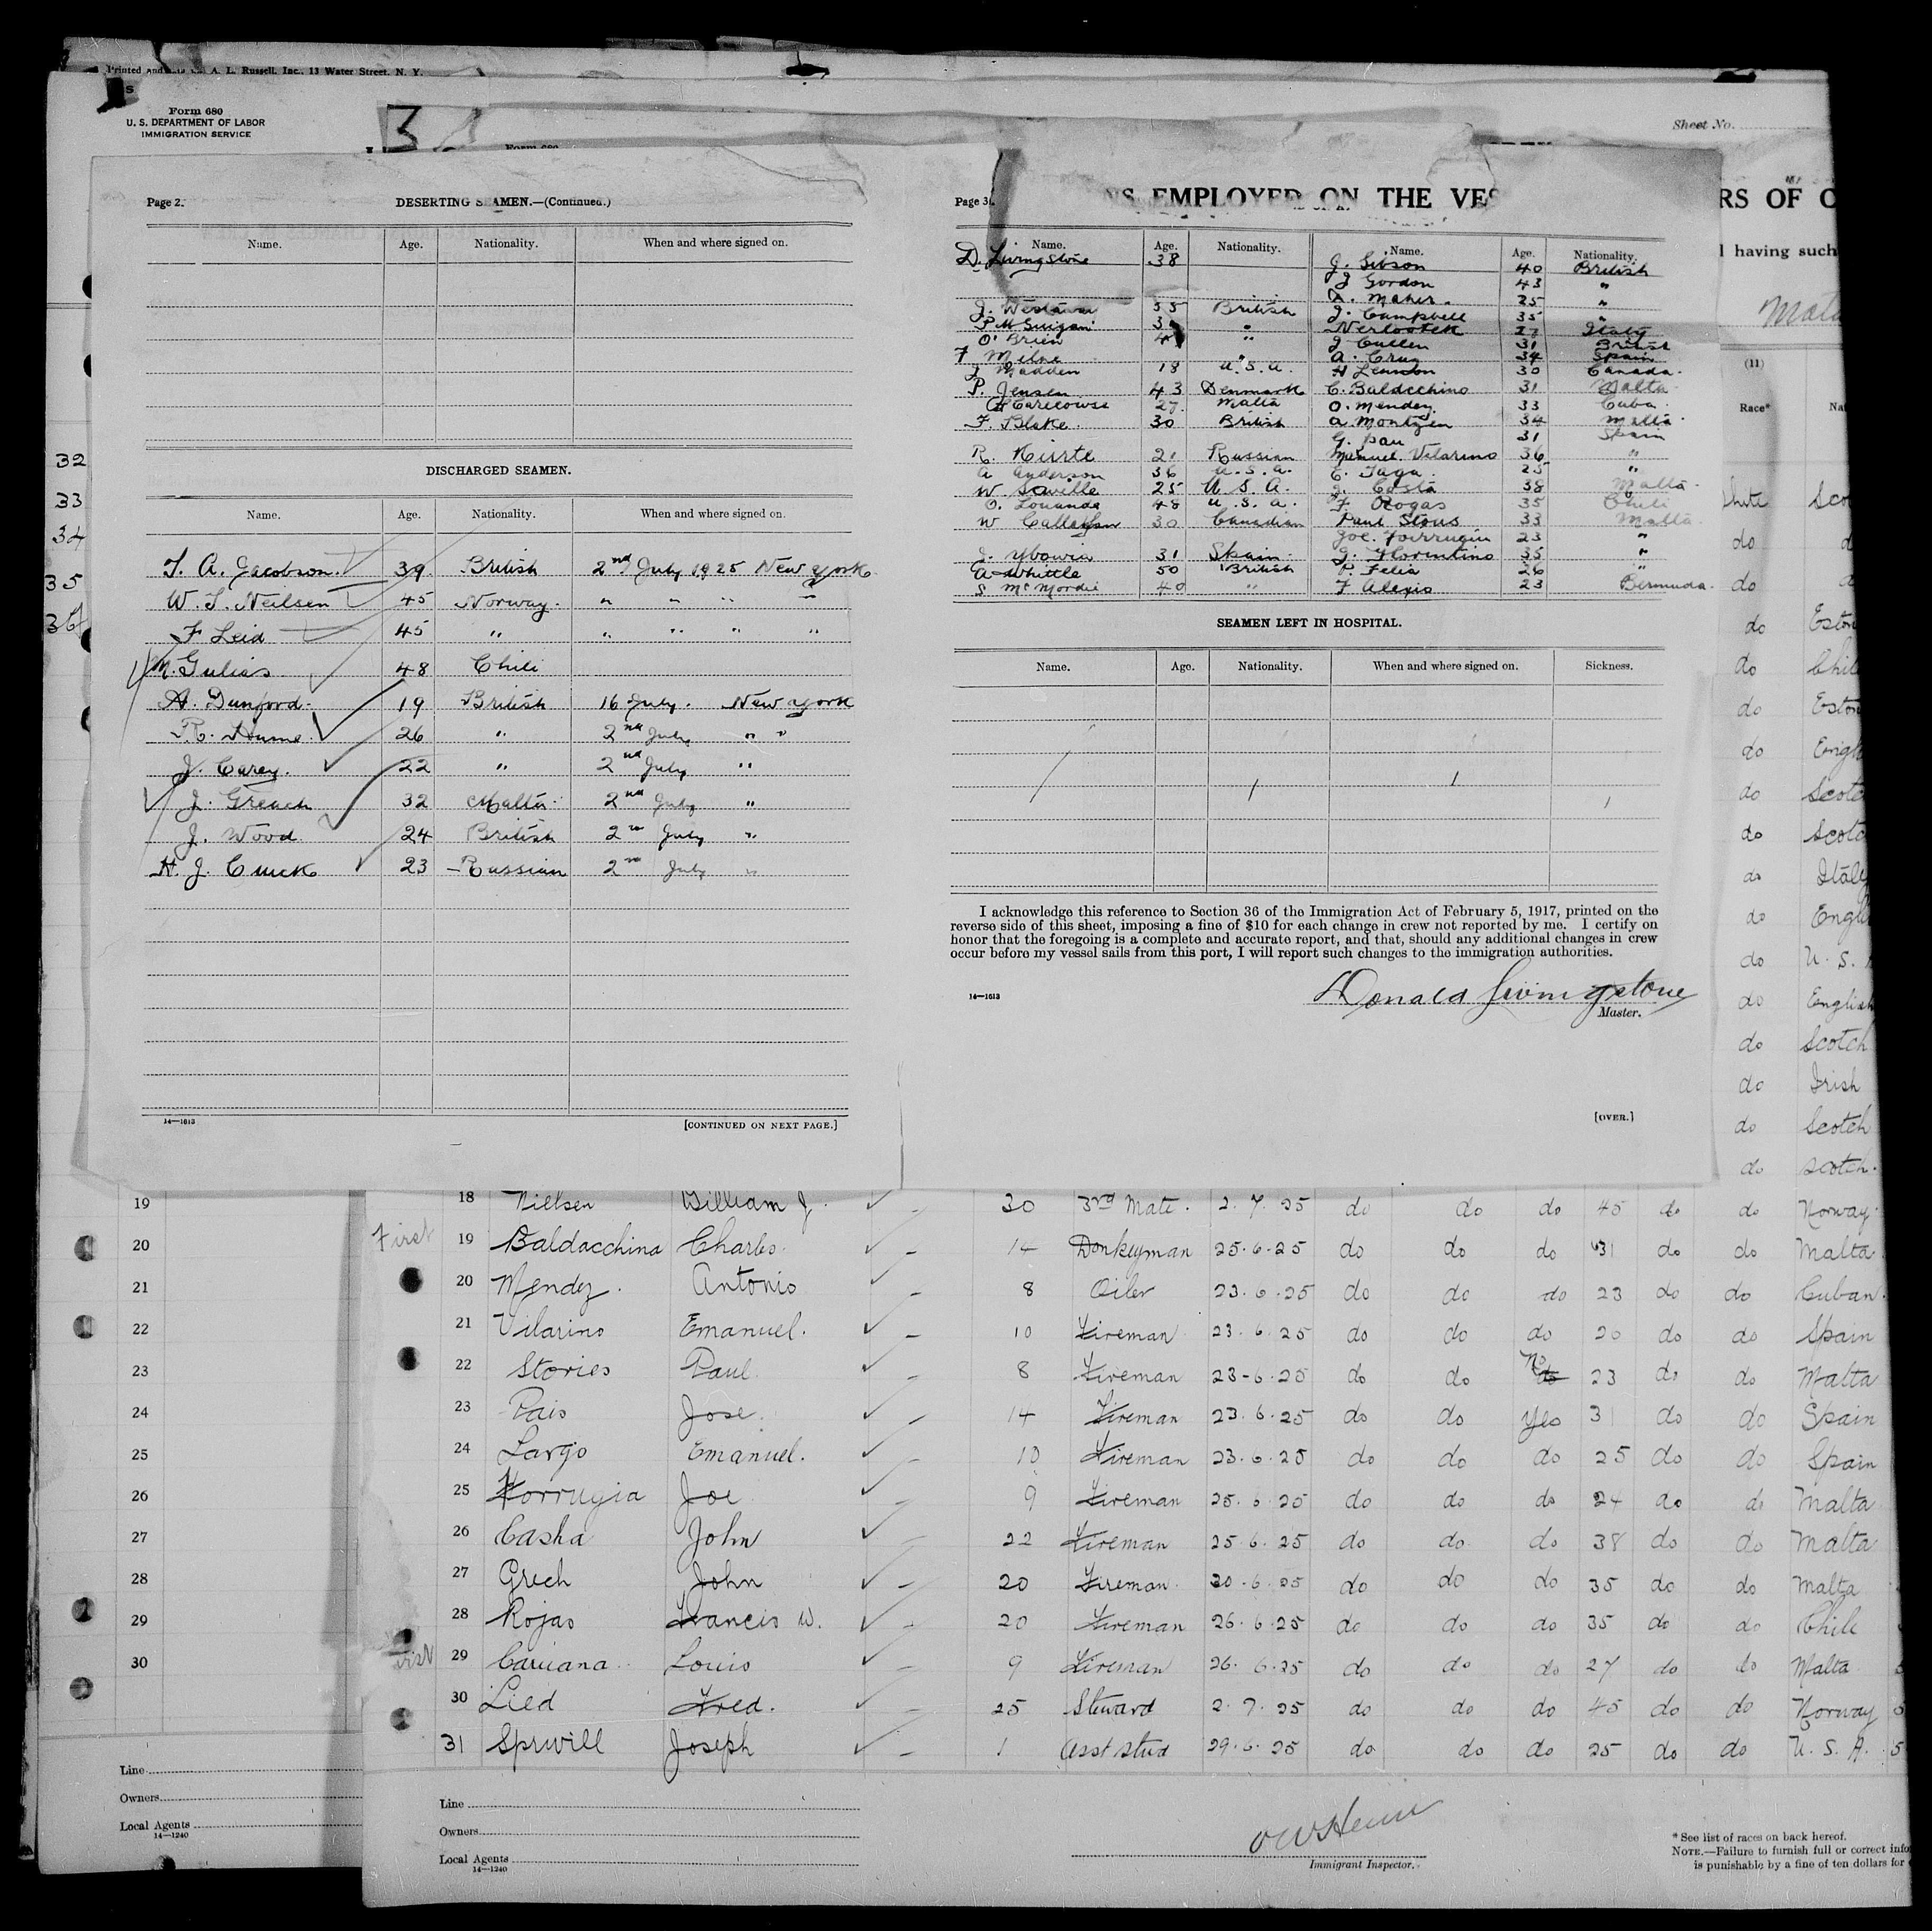 Printed and A. L. Russell, Inc., 13 Water Street, N. Y.
Form 680
U. S. DEPARTMENT OF LABOR
IMMIGRATION SERVICE
3
Form 680
Sheet No.
NS EMPLOYED ON THE VES RS OF C
l having such
(11)
Race*
32
33
34
35
36
Page 2.
DESERTING SEAMEN.—(Continued.)
Name. Age. Nationality. When and where signed on.
DISCHARGED SEAMEN.
Name. Age. Nationality. When and where signed on.
T. A. Jacobson. 39 British 2nd July 1925 New York
W. J. Neilsen 45 Norway. " " " "
F Leid 45 " " " " "
M. Gulias 48 Chili
A. Dunford. 19 British 16 July. New York
R. Hume. 26 " 2nd July " "
J. Carey. 22 " 2nd July "
J. Greach 32 Malta. 2nd July "
J. Wood. 24 British 2nd July "
H. J. Cuick 23 Russian 2nd July "
14—1613
[CONTINUED ON NEXT PAGE.]
Page 3.
Name. Age. Nationality. Name. Age. Nationality.
D. Livingstone 38 J. Gibson 40 British
J Gordon 43 "
A. Maher. 25 "
J. 35 British J. Campbell 35 "
P McGuigan " 27 Italy
O'Brien " J Cullen 31 British
F Milne " A. Cruz 34 Spain
J Madden 18 U.S.A. H 30 Canada.
P. Jensen 43 Denmark C. Baldcchino 31 Malta
27. Malta O. Mendez 33 Cuba
F. Blake. 30 British A Montzen 34 Malta
G. Pau 31 Spain
R. Kirste 21 Russian Manuel. Vilarino 36 "
A Anderson 36 U.S.A. E. Jaga 25 "
W. Saville 25 U S A. J. Casta 38 Malta
O. Louanda 48 U.S.A. F. Rogas 35 Chili
W Callaghan 30 Canadian Paul Storis 33 Malta
Joe. 23 "
J. Ybowia 31 Spain. J. Florentino 35 "
A Whittle 50 British P. Felia 26 "
S McMordie 40 " F Alexis 23 Bermuda.
SEAMEN LEFT IN HOSPITAL.
Name. Age. Nationality. When and where signed on. Sickness.
I acknowledge this reference to Section 36 of the Immigration Act of February 5, 1917, printed on the
reverse side of this sheet, imposing a fine of $10 for each change in crew not reported by me. I certify on
honor that the foregoing is a complete and accurate report, and that, should any additional changes in crew
occur before my vessel sails from this port, I will report such changes to the immigration authorities.
14—1613
Donald Livingstone
Master.
[OVER.]
do
do
do Eston
do Chile
do Eston
do Engl
do Scotc
do Scotc
do Italy
do Engl
do U. S.
do English
do Scotch
do Irish
do Scotch
do Scotch.
19
20
21
22
23
24
25
26
27
28
29
30
18 Nielsen William J. 30 3rd Mate. 2.7.25 do do do 45 do do Norway.
First 19 Baldacchina Charles. 14 Donkeyman 25.6.25 do do do 31 do do Malta
20 Mendez. Antonio 8 Oiler 23.6.25 do do do 23 do do Cuban.
21 Vilarino Emanuel. 10 Fireman 23.6.25 do do do 20 do do Spain
22 Stories Paul. 8 Fireman 23-6.25 do do No do 23 do do Malta
23 Pais Jose. 14 Fireman 23.6.25 do do yes 31 do do Spain
24 Largo Emanuel. 10 Fireman 23.6.25 do do do 25 do do Spain
25 Forrugia Joe 9 Fireman 25.6.25 do do do 24 do do Malta
26 Casha John 22 Fireman 25.6.25 do do do 38 do do Malta
27 Grech John 20 Fireman. 20.6.25 do do do 35 do do Malta
28 Rojas Francis W. 20 Fireman 26.6.25 do do do 35 do do Chile
29 Caruana. Louis 9 Fireman 26.6.25 do do do 27 do do Malta
30 Lied Fred. 25 Steward 2.7.25 do do do 45 do do Norway 5
31 Spruill Joseph 1 Asst stud 29.6.25 do do do 25 do do U. S. A. 5
Line
Owners
Local Agents
14—1240
Line
Owners
Local Agents
14—1240
Immigrant Inspector.
* See list of races on back hereof.
NOTE.—Failure to furnish full or correct info
is punishable by a fine of ten dollars for